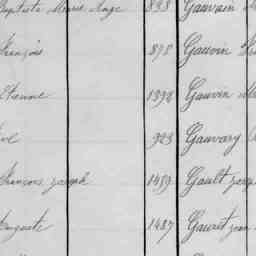 Baptiste Marie Ange 838 Gauvain
François 878 Gauvin
Etienne 1398 Gauvin
923 Gauvary
François joseph 1459 Gault joseph
Auguste 1487 Gauret jean